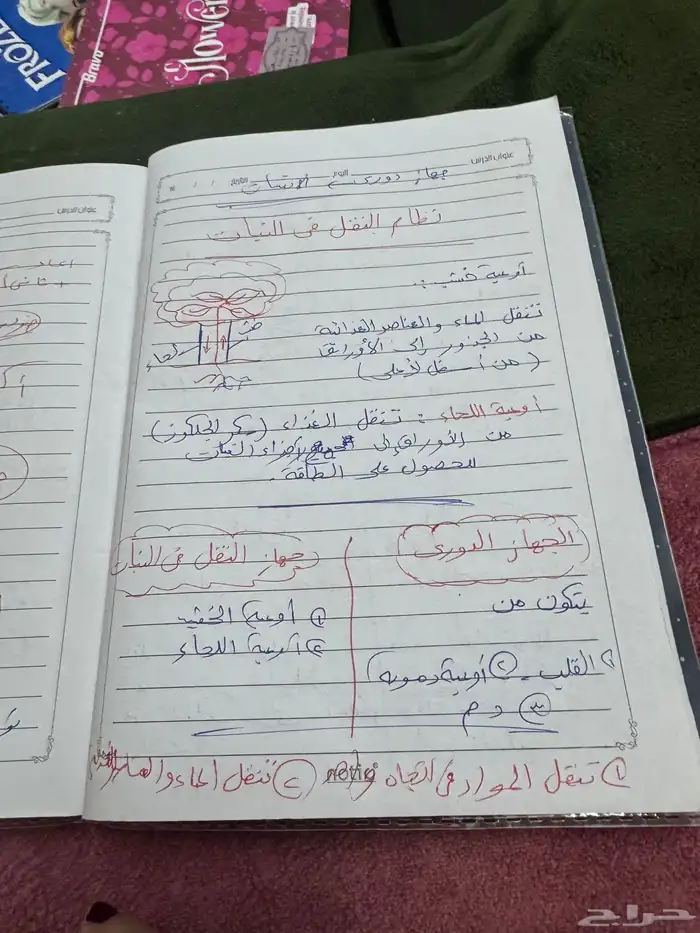 FROZEN
Bravo
flower
عنوان الدرس
اليوم
التاريخ
جهاز دوري
نظام النقل في النبات
أوعية خشب:
تنقل الماء والعناصر الغذائية
من الجذور إلى الأوراق
(من أسفل لأعلى)
خشب
لحاء
أوعية اللحاء: تنقل الغذاء (سكر الجلوكوز)
من الأوراق إلى جميع أجزاء النبات
للحصول على الطاقة.
الجهاز الدورى
يتكون من
١ القلب - ٢ أوعية دموية
٣ دم
جهاز النقل في النبات
١ أوعية الخشب
٢ أوعية اللحاء
١ تنقل المواد في اتجاه واحد ٢ تنقل الماء والعناصر
عنوان الدرس
حراج